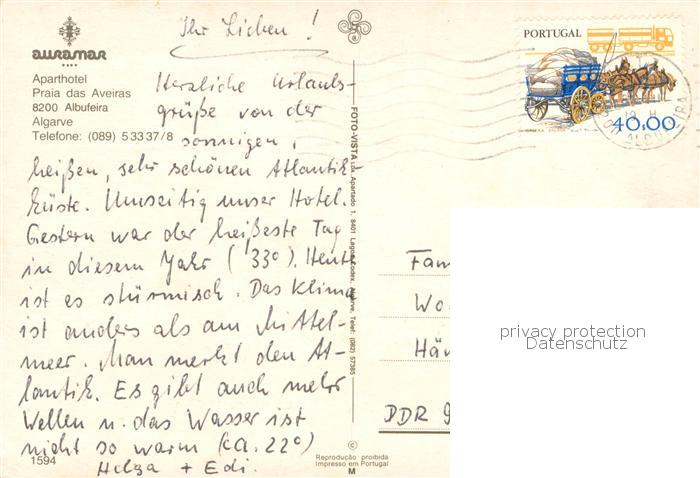 auramar
Aparthotel
Praia das Aveiras
8200 Albufeira
Algarve
Telefone: (089) 5 33 37/8
Ihr Lieben!
Herzliche Urlaubs-
grüße von der
sonnigen,
heißen, sehr schönen Atlantik
küste. Umseitig unser Hotel.
Gestern war der heißeste Tag
in diesem Jahr (33°). Heute
ist es stürmisch. Das Klima
ist anders als am Mittel-
meer. Man merkt den At-
lantik. Es gibt auch mehr
Wellen u. das Wasser ist
nicht so warm (ca. 22°)
Helga + Edi.
1594
FOTO-VISTA Lda. Apartado 1, 8401 Lagoa Codex, Algarve, Telef. (082) 57385
©
Reprodução proibida
Impresso em Portugal
M
PORTUGAL
40,00
Fam
Wo
Hän
DDR 9
privacy protection
Datenschutz